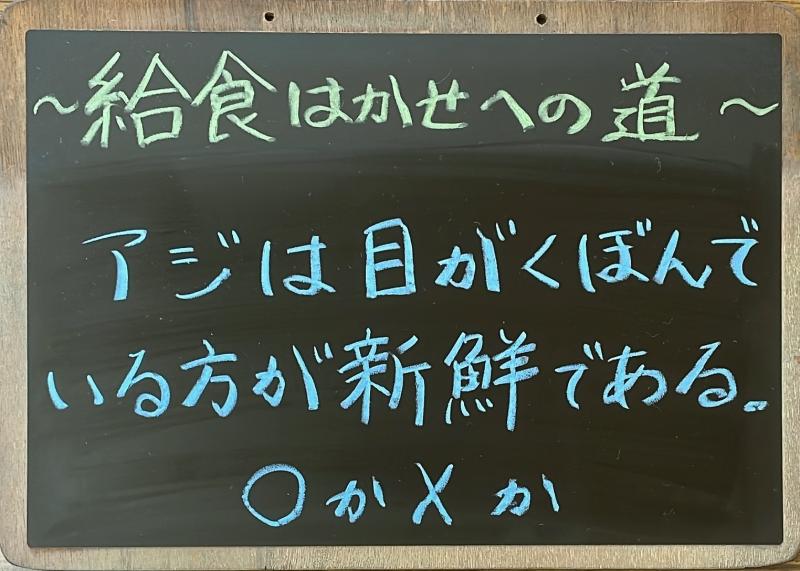 ～給食はかせへの道～
アジは目がくぼんで
いる方が新鮮である。
〇か✕か